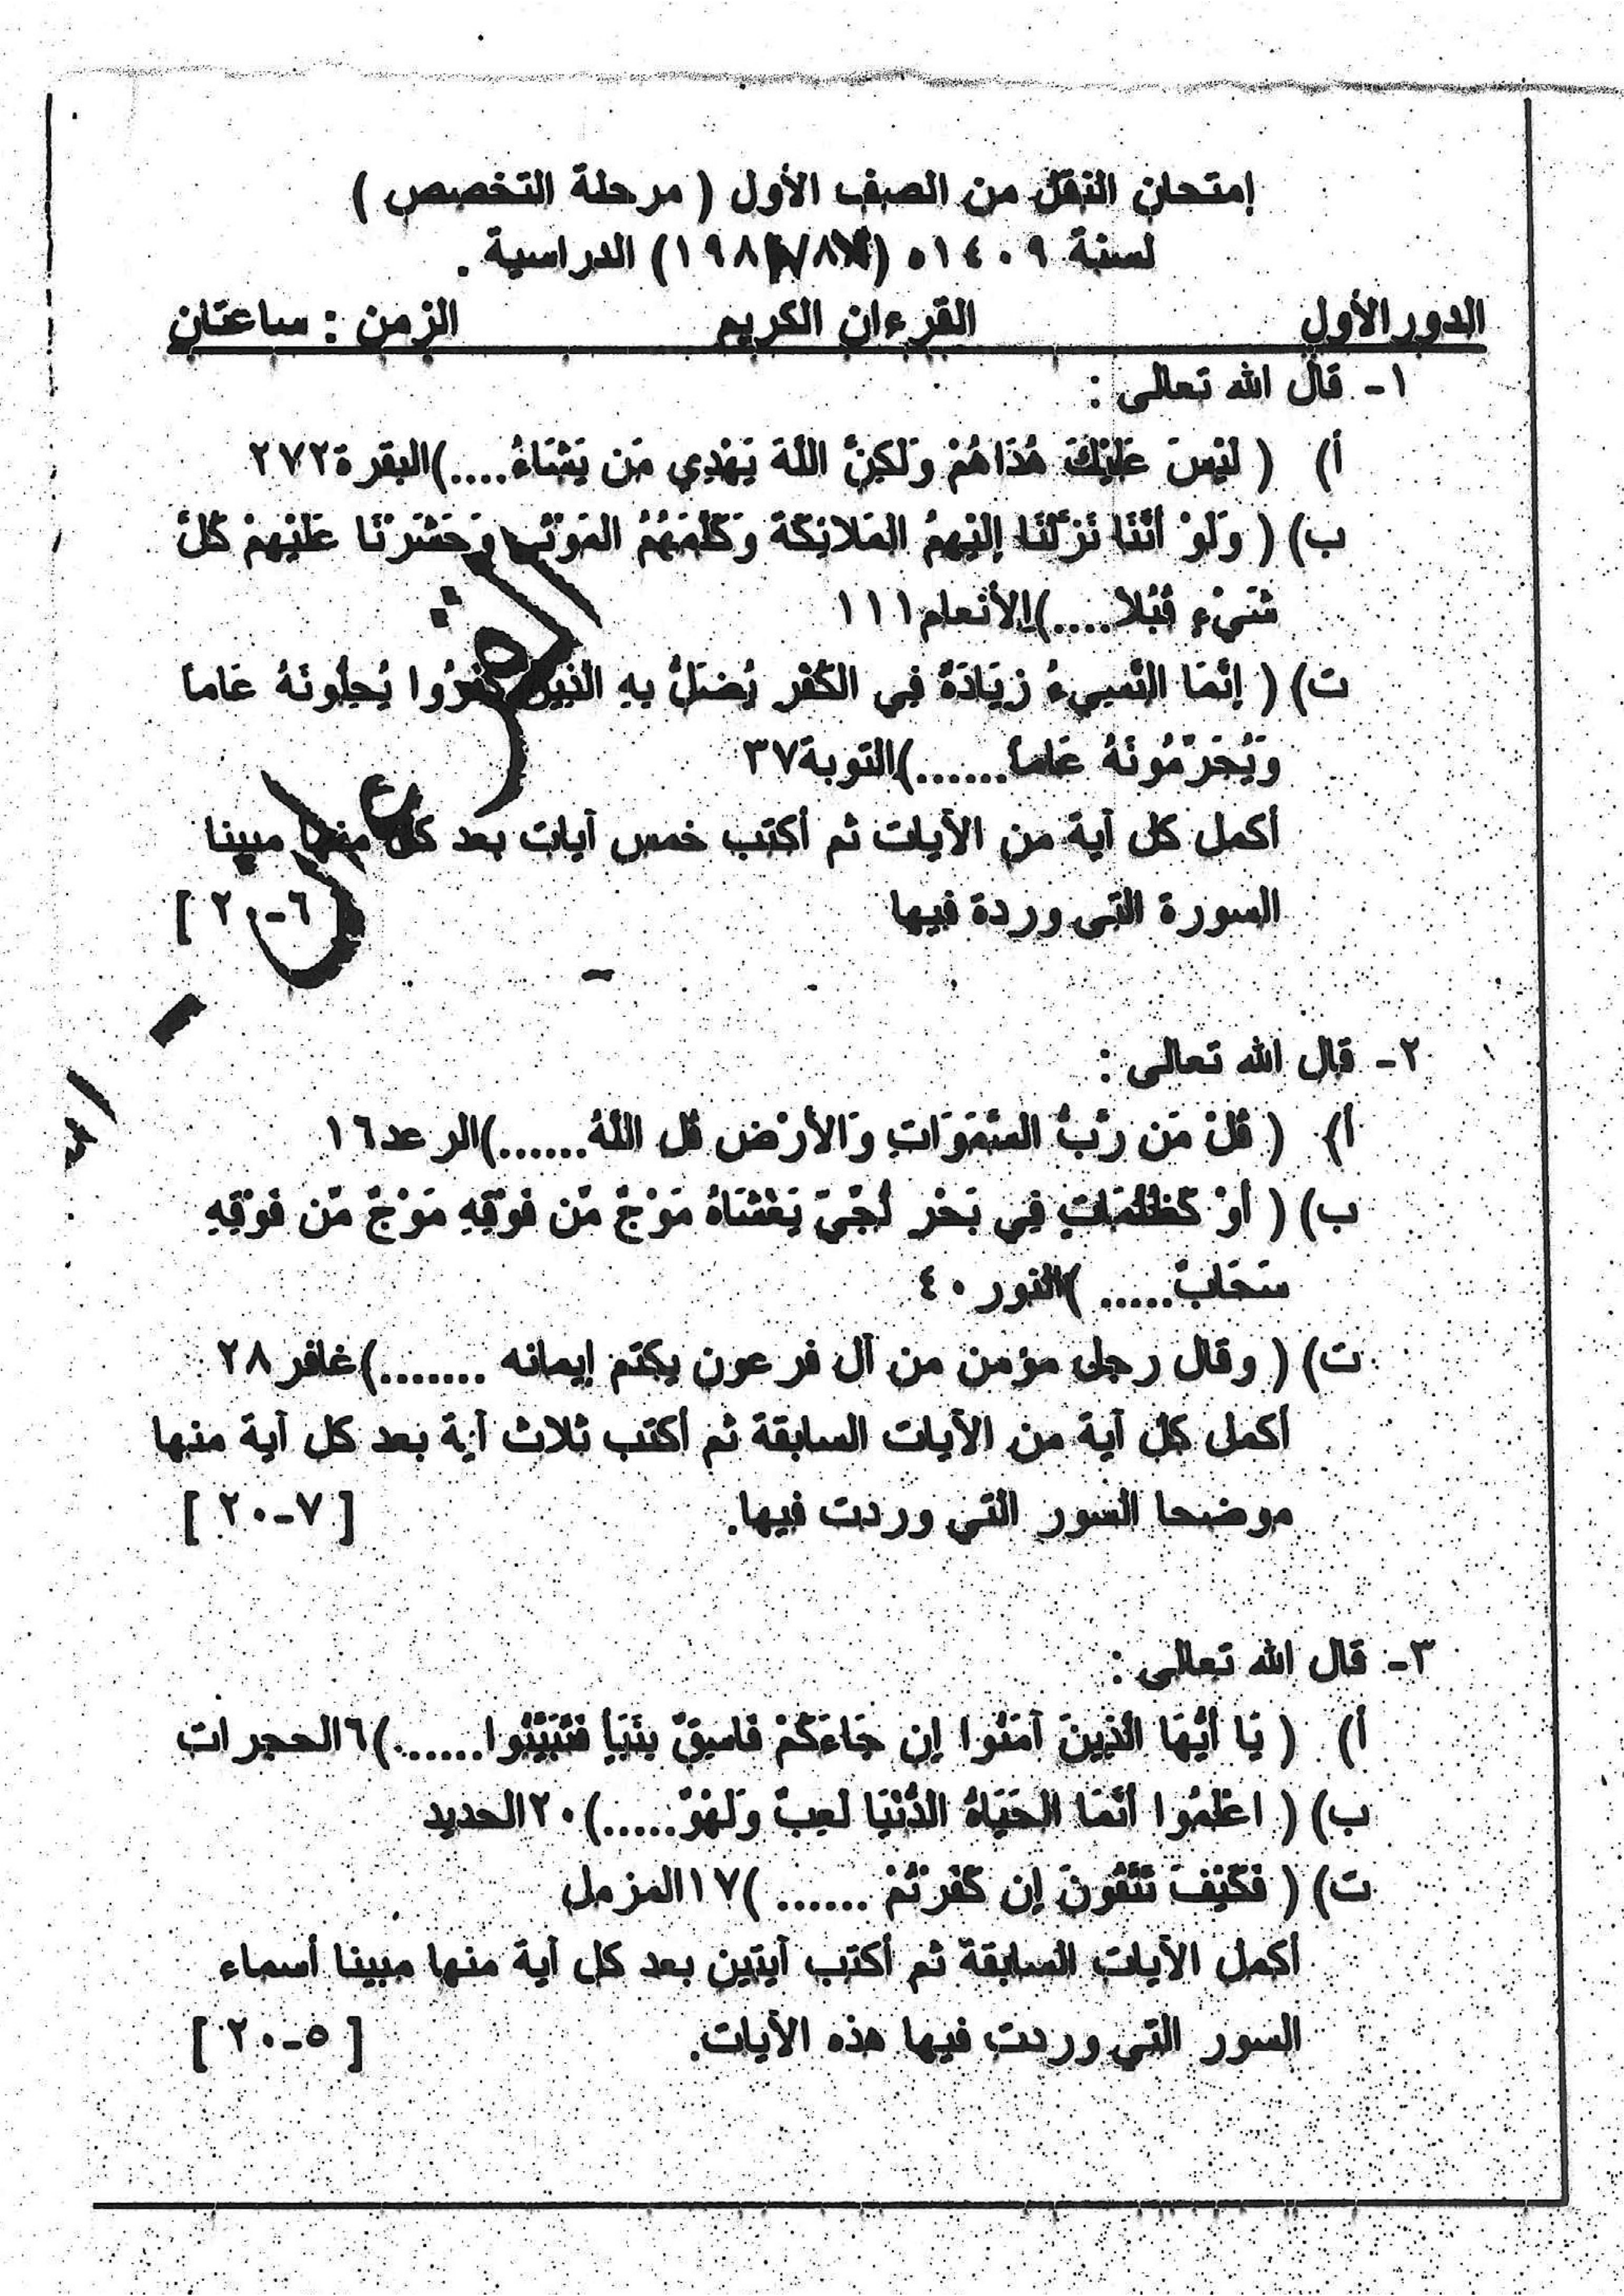 إمتحان النقل من الصف الأول ( مرحلة التخصص )
لسنة ١٤٠٩ ه الدراسية .
الدور الأول القرءان الكريم الزمن : ساعتان
١- قال الله تعالى :
أ) ( لَيْسَ عَلَيْكَ هُدَاهُمْ وَلَكِنَّ اللَّهَ يَهْدِي مَن يَشَاءُ....)البقرة٢٧٢
ب) ( وَلَوْ أَنَّنَا نَزَّلْنَا إِلَيْهِمُ المَلائِكَةَ وَكَلَّمَهُمُ المَوْتَى وَحَشَرْنَا عَلَيْهِمْ كُلَّ
شَيْءٍ قُبُلا....)الأنعام١١١
ت) ( إِنَّمَا النَّسِيءُ زِيَادَةٌ فِي الكُفْرِ يُضَلُّ بِهِ الَّذِينَ كَفَرُوا يُحِلُّونَهُ عَاماً
وَيُحَرِّمُونَهُ عَاماً......)التوبة٣٧
أكمل كل آية من الآيات ثم أكتب خمس آيات بعد كل منها مبينا
السورة التى وردة فيها [ ٦-٢٠ ]
٢- قال الله تعالى :
أ) ( قُلْ مَن رَّبُّ السَّمَوَاتِ وَالأَرْضِ قُلِ اللَّهُ......)الرعد١٦
ب) ( أَوْ كَظُلُمَاتٍ فِي بَحْرٍ لُّجِّيٍّ يَغْشَاهُ مَوْجٌ مِّن فَوْقِهِ مَوْجٌ مِّن فَوْقِهِ
سَحَابٌ..... )النور٤٠
ت) ( وقال رجل مؤمن من آل فرعون يكتم إيمانه .......)غافر٢٨
أكمل كل آية من الآيات السابقة ثم أكتب ثلاث آية بعد كل آية منها
موضحا السور التي وردت فيها. [ ٧-٢٠ ]
٣- قال الله تعالى :
أ) ( يَا أَيُّهَا الَّذِينَ آمَنُوا إِن جَاءَكُمْ فَاسِقٌ بِنَبَأٍ فَتَبَيَّنُوا......)٦الحجرات
ب) ( اعْلَمُوا أَنَّمَا الحَيَاةُ الدُّنْيَا لَعِبٌ وَلَهْوٌ.....)٢٠الحديد
ت) ( فَكَيْفَ تَتَّقُونَ إِن كَفَرْتُمْ ...... )١٧المزمل
أكمل الآيات السابقة ثم أكتب آيتين بعد كل آية منها مبينا أسماء
السور التي وردت فيها هذه الآيات. [ ٥-٢٠ ]